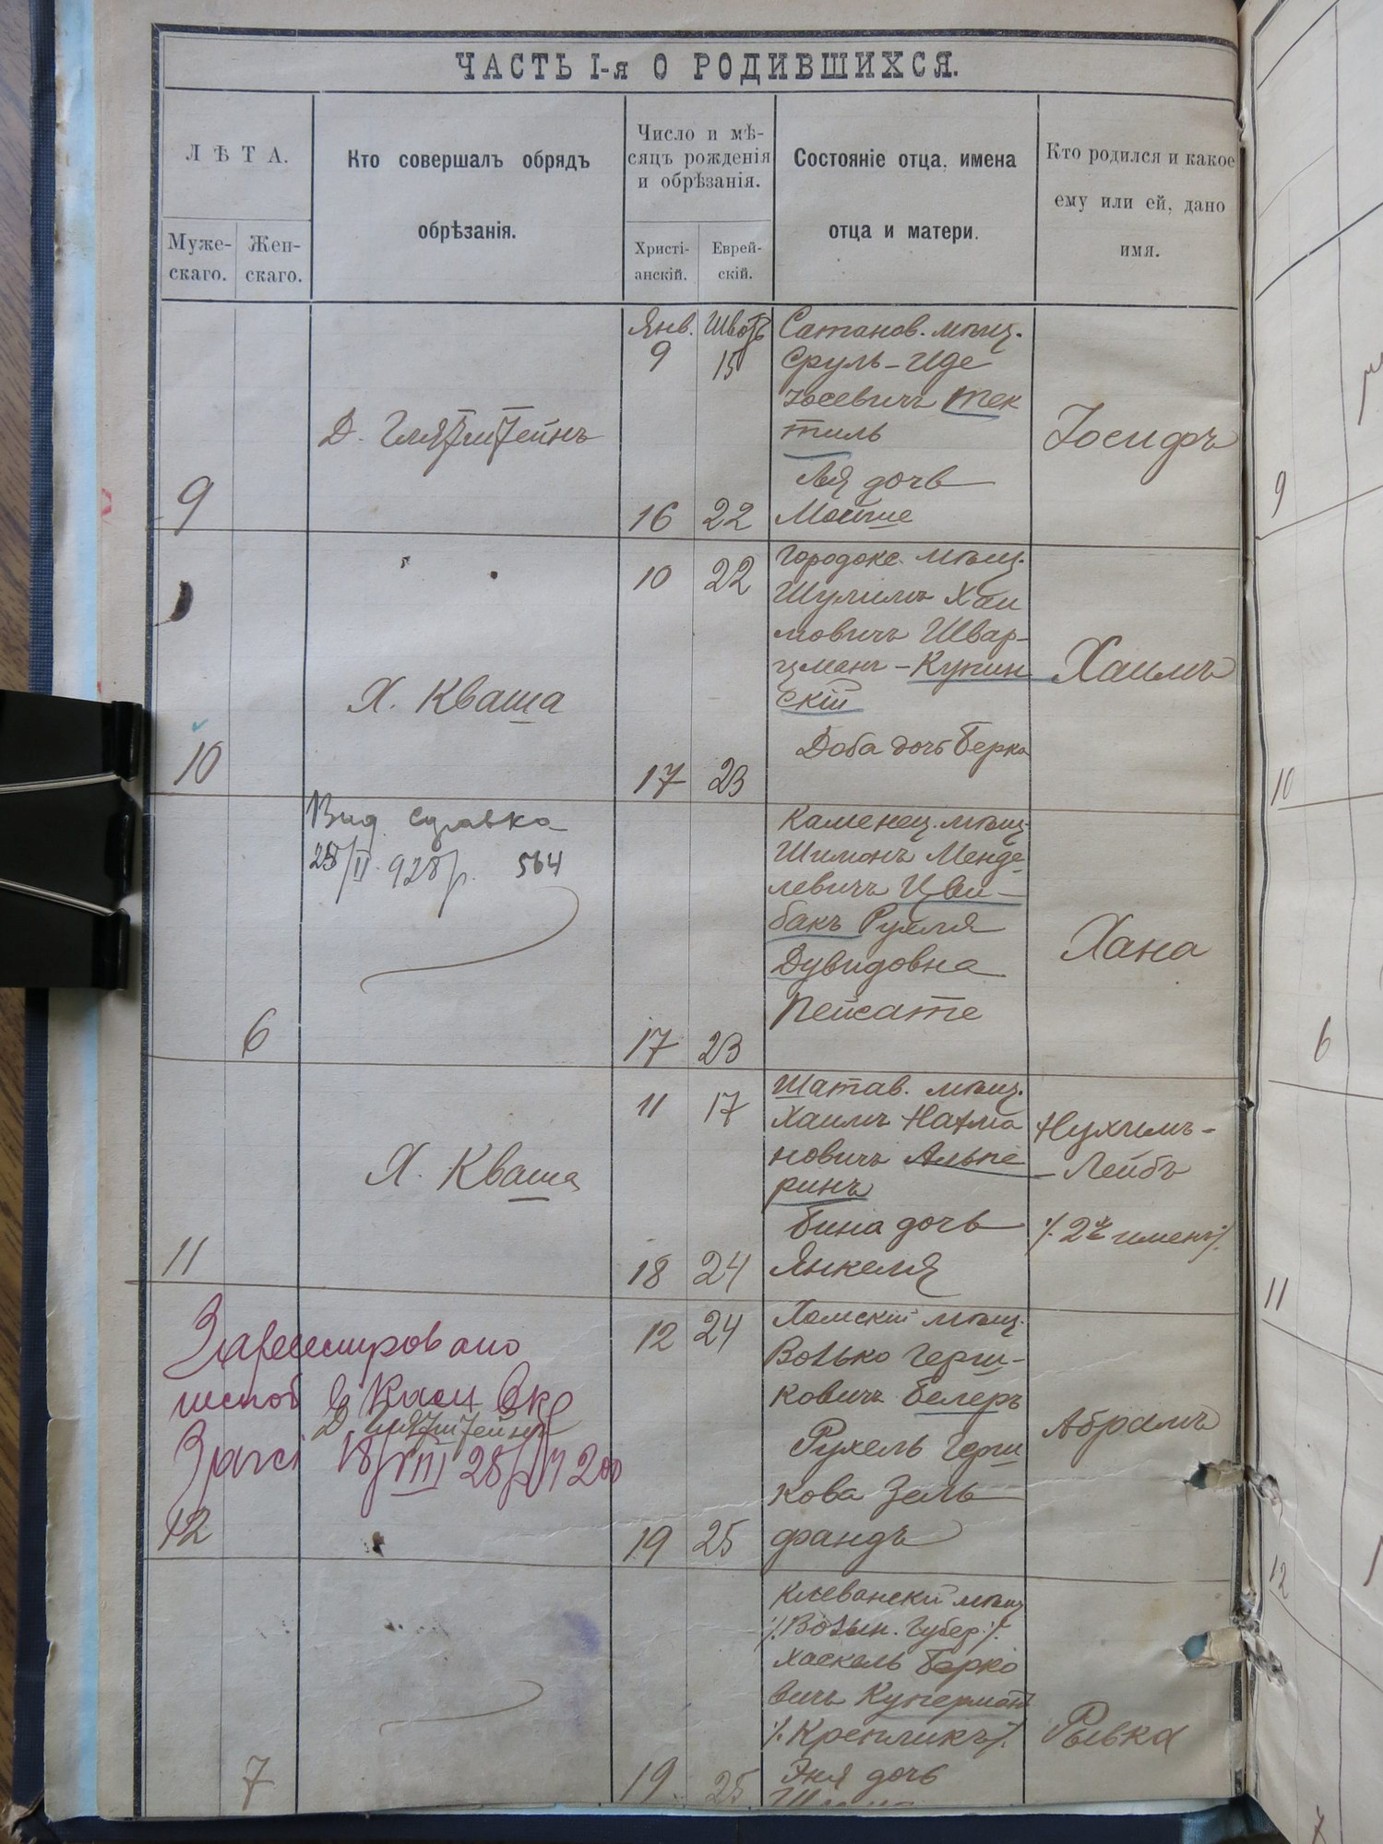 ЧАСТЬ I-я О РОДИВШИХСЯ.
ЛѢТА.
Муже-
скаго.
Жен-
скаго.
Кто совершалъ обрядъ
обрѣзанія.
Число и мѣ-
сяцъ рожденія
и обрѣзанія.
Христі-
анскій.
Еврей-
скій.
Состояніе отца, имена
отца и матери.
Кто родился и какое
ему или ей, дано
имя.
9
Д. Гляз
Янв.
9
16
Шватъ
15
22
Сатанов. мѣщ.
Сруль-Иде
Іосевичъ Тек
тиль
Лея дочь
Мошше
Іосифъ
10
Х. Кваша
10
17
22
23
Городокс. мѣщ.
Шулимъ Хаи
мовичъ Швар-
цманъ-Купин
скій
Доба дочь Берка
Хаимъ
6
Вид. справка
928 р. 564
17
23
Каменец. мѣщ.
Шимонъ Менде
левичъ Цви-
бакъ Рухля
Дувидовна
Хана
11
Х. Кваша
11
18
17
24
Шатав. мѣщ.
Хаимъ Нахма
новичъ Альпе
ринъ
Бина дочь
Янкеля
Нухимъ-
Лейбъ
12
12
19
24
25
мѣщ.
Волько Герш-
ковичъ Белеръ
Рухель Герш
кова Зель
фандъ
Абрамъ
7
19
25
Клеванскій мѣщ
/. Волын. Губер. /.
Хаскель Берко
вичъ Куперманъ
/. Крепликъ /.
Эня дочь
Рывка
9
10
6
11
12
7